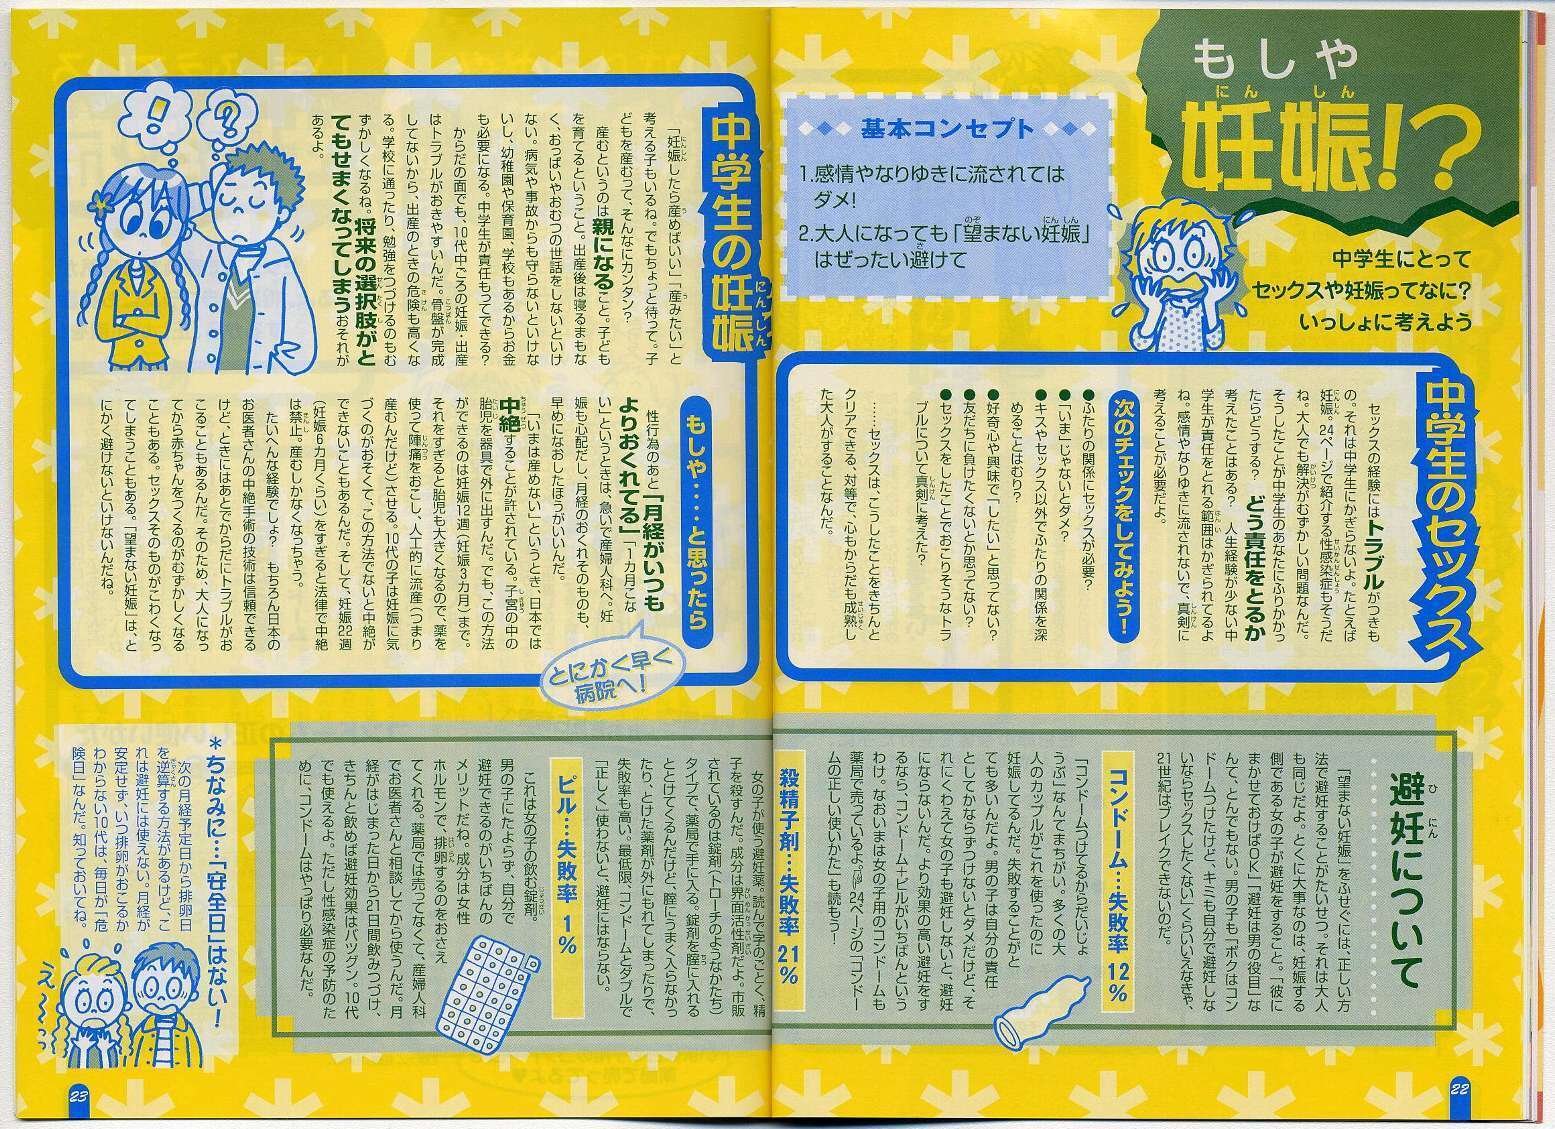 もしや
にん しん
妊娠!?
中学生にとって
セックスや妊娠ってなに?
いっしょに考えよう
基本コンセプト
1.感情やなりゆきに流されては
ダメ!
2.大人になっても「望まない妊娠」
はぜったい避けて
中学生のセックス
セックスの経験にはトラブルがつきも
の。それは中学生にかぎらないよ。たとえば
妊娠。24ページで紹介する性感染症もそうだ
ね。大人でも解決がむずかしい問題なんだ。
そうしたことが中学生のあなたにふりかかっ
たらどうする? どう責任をとるか
考えたことはある? 人生経験が少ない中
学生が責任をとれる範囲はかぎられてるよ
ね。感情やなりゆきに流されないで、真剣に
考えることが必要だよ。
次のチェックをしてみよう!
●ふたりの関係にセックスが必要?
●「いま」じゃないとダメ?
●キスやセックス以外でふたりの関係を深
めることはむり?
●好奇心や興味で「したい」と思ってない?
●友だちに負けたくないとか思ってない?
●セックスをしたことでおこりそうなトラ
ブルについて真剣に考えた?
……セックスは、こうしたことをきちんと
クリアできる、対等で、心もからだも成熟し
た大人がすることなんだ。
避妊について
「望まない妊娠」をふせぐには、正しい方
法で避妊することがたいせつ。それは大人
も同じだよ。とくに大事なのは、妊娠する
側である女の子が避妊をすること。「彼に
まかせておけばOK」「避妊は男の役目」な
んて、とんでもない。男の子も「ボクはコン
ドームつけたけど、キミも自分で避妊しな
いならセックスしたくない」くらいいえなきゃ、
21世紀はブレイクできないのだ。
コンドーム…失敗率 12%
「コンドームつけてるからだいじょ
うぶ」なんてまちがい。多くの大
人のカップルがこれを使ったのに
妊娠してるんだ。失敗することが
とても多いんだよ。男の子は自分の責任
としてかならずつけないとダメだけど、そ
れにくわえて女の子も避妊しないと、避妊
にならないんだ。より効果の高い避妊をす
るなら、コンドーム+ピルがいちばんという
わけ。なおいまは女の子用のコンドームも
薬局で売っているよ。24ページの「コンドー
ムの正しい使いかた」も読もう!
殺精子剤…失敗率 21%
女の子が使う避妊薬。読んで字のごとく、精
子を殺すんだ。成分は界面活性剤だよ。市販
されているのは錠剤(トローチのようなかたち)
タイプで、薬局で手に入る。錠剤を腟に入れる
ととけてくるんだけど、腟にうまく入らなかっ
たり、とけた薬剤が外にもれてしまったりで、
失敗率も高い。最低限、コンドームとダブルで
「正しく」使わないと、避妊にはならない。
ピル…失敗率 1%
これは女の子の飲む錠剤。
男の子にたよらず、自分で
避妊できるのがいちばんの
メリットだね。成分は女性
ホルモンで、排卵するのをおさえ
てくれる。薬局では売ってなくて、産婦人科
でお医者さんと相談してから使うんだ。月
経がはじまった日から21日間飲みつづけ、
きちんと飲めば避妊効果はバツグン。10代
でも使えるよ。ただし性感染症の予防のた
めに、コンドームはやっぱり必要なんだ。
22
中学生の妊娠
「妊娠したら産めばいい」「産みたい」と
考える子もいるね。でもちょっと待って。子
どもを産むって、そんなにカンタン?
産むというのは親になること。子ども
を育てるということ。出産後は寝るまもな
く、おっぱいやおむつの世話をしないといけ
ない。病気や事故からも守らないといけな
いし、幼稚園や保育園、学校もあるからお金
も必要になる。中学生が責任もってできる?
からだの面でも、10代中ごろの妊娠、出産
はトラブルがおきやすいんだ。骨盤が完成
してないから、出産のときの危険も高くな
る。学校に通ったり、勉強をつづけるのもむ
ずかしくなるね。将来の選択肢がと
てもせまくなってしまうおそれが
あるよ。
!
?
もしや‥‥と思ったら
性行為のあと「月経がいつも
よりおくれてる」「1カ月こな
い」というときは、急いで産婦人科へ。妊
娠も心配だし、月経のおくれそのものも、
早めになおしたほうがいいんだ。
「いまは産めない」というとき、日本では
中絶することが許されている。子宮の中の
胎児を器具で外に出すんだ。でも、この方法
ができるのは妊娠12週(妊娠3カ月)まで。
それをすぎると胎児も大きくなるので、薬を
使って陣痛をおこし、人工的に流産(つまり
産むんだけど)させる。10代の子は妊娠に気
づくのがおそくて、この方法でないと中絶が
できないこともあるんだ。そして、妊娠22週
(妊娠6カ月くらい)をすぎると法律で中絶
は禁止。産むしかなくなっちゃう。
たいへんな経験でしょ? もちろん日本の
お医者さんの中絶手術の技術は信頼できる
けど、ときにはあとでからだにトラブルがお
こることもあるんだ。そのため、大人になっ
てから赤ちゃんをつくるのがむずかしくなる
こともある。セックスそのものがこわくなっ
てしまうこともある。「望まない妊娠」は、と
にかく避けないといけないんだね。
とにかく早く
病院へ!
*ちなみに…「安全日」はない!
次の月経予定日から排卵日
を逆算する方法があるけど、こ
れは避妊には使えない。月経が
安定せず、いつ排卵がおこるか
わからない10代は、毎日が「危
険日」なんだ。知っておいてね。
え〜っ
23